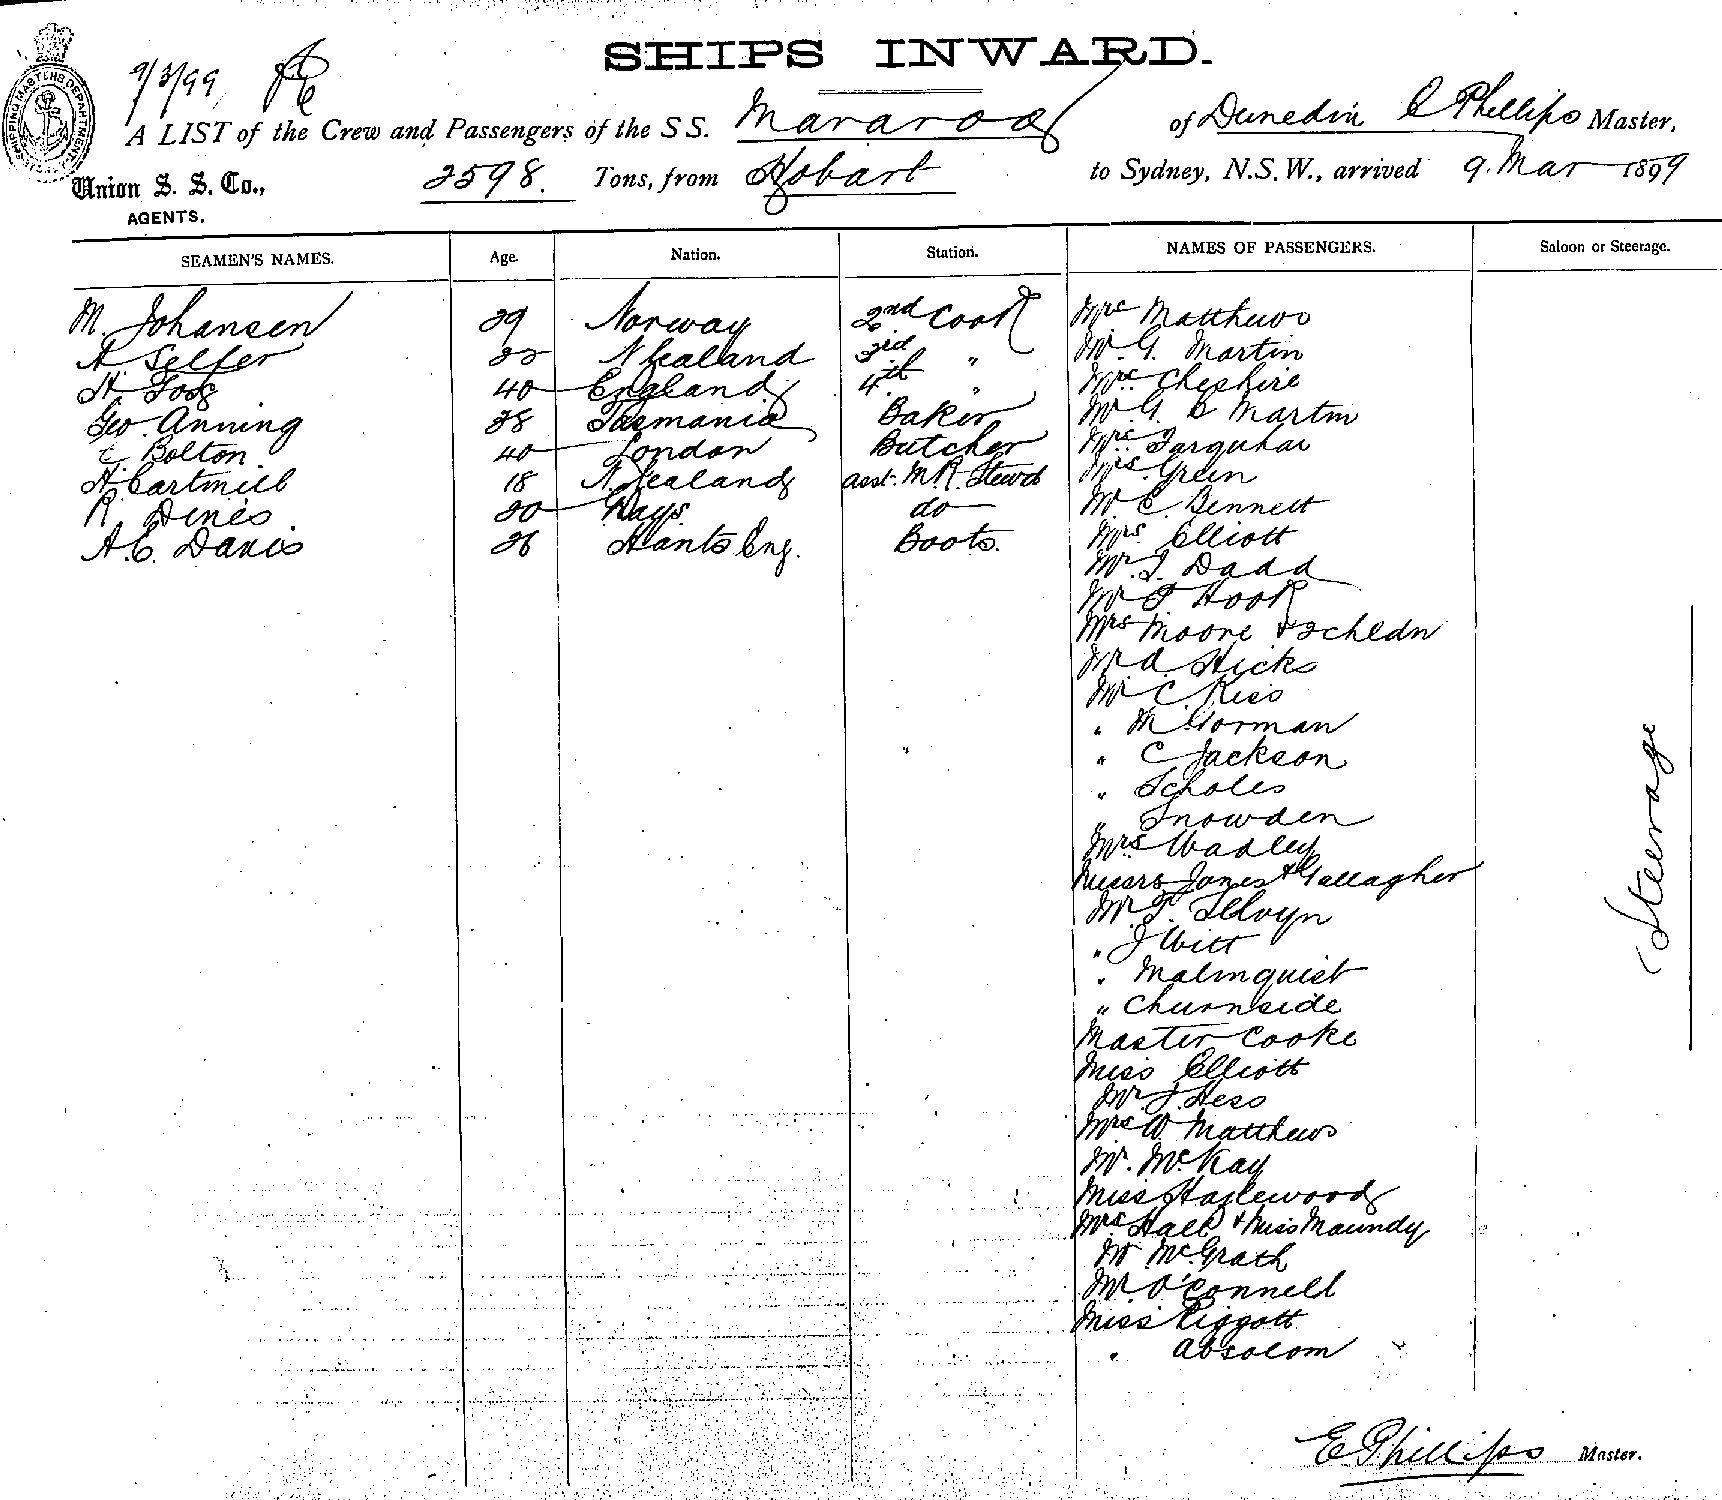 SHIPS INWARD.
9/3/99
A LIST of the Crew and Passengers of the S S. Mararoa of Dunedin E Phillips Master,
Union S. S. Co., 2598. Tons, from Hobart to Sydney, N.S.W., arrived 9. Mar 1899
AGENTS.
SEAMEN'S NAMES. Age. Nation. Station. NAMES OF PASSENGERS. Saloon or Steerage.
M. Johansen 29 Norway 2nd Cook Mrs Matthews
A. Selfer 22 N Zealand 3rd " Mr. G. Martin
H. Fogg 40 England 4th " Mrs Cheshire
Geo. Anning 28 Tasmania Baker Mr G. C Martin
C. Bolton 40 London Butcher Mrs Farquhar
H. Cartmill 18 N. Zealand asst. M.R. Stewd Mrs Green
R. Dines 20 do Mr C. Bennett
A.C. Davis 26 Hants Eng. Boots. Mrs Elliott
Mr. J. Dadd
Mr T Hook
Mrs Moore & 2 chldn
Mr A. Hicks
Mr C. Riss
" M Gorman
" C Jackson
" Scholes
" Snowden
Mrs Wadley
Messrs Jones & Gallagher
Mr T. Selwyn
" J Witt
" Malmquist
" Churnside
Master Cooke
Miss Elliott
Mr J. Hess
Mrs W. Matthews
Mr. McKay
Miss Hazlewood
Mrs Hall & Miss Maundy
Mr McGrath
Mr. O'Connell
Miss Piggott
" Absolom
Steerage
E Phillips Master.